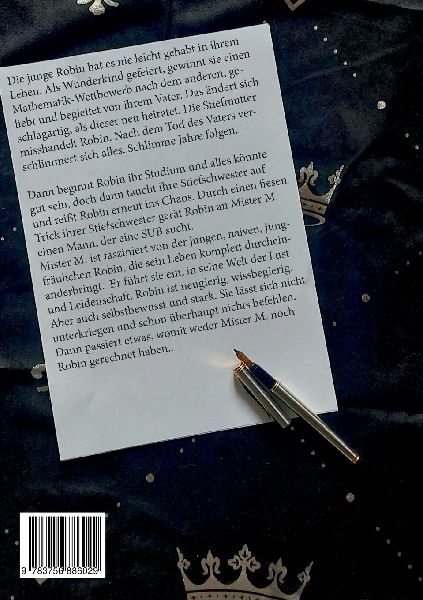 Die junge Robin hat es nie leicht gehabt in ihrem
Leben. Als Wunderkind gefeiert, gewinnt sie einen
Mathematik-Wettbewerb nach dem anderen, ge-
liebt und begleitet von ihrem Vater. Das ändert sich
schlagartig, als dieser neu heiratet. Die Stiefmutter
misshandelt Robin. Nach dem Tod des Vaters ver-
schlimmert sich alles. Schlimme Jahre folgen.
Dann beginnt Robin ihr Studium und alles könnte
gut sein, doch dann taucht ihre Stiefschwester auf
und reißt Robin erneut ins Chaos. Durch einen fiesen
Trick ihrer Stiefschwester gerät Robin an Mister M.
einen Mann, der eine SUB sucht.
Mister M. ist fasziniert von der jungen, naiven, jung-
fräulichen Robin, die sein Leben komplett durchein-
anderbringt. Er führt sie ein, in seine Welt der Lust
und Leidenschaft. Robin ist neugierig, wissbegierig.
Aber auch selbstbewusst und stark. Sie lässt sich nicht
unterkriegen und schon überhaupt nichts befehlen.
Dann passiert etwas, womit weder Mister M. noch
Robin gerechnet haben..
9 783756 886029